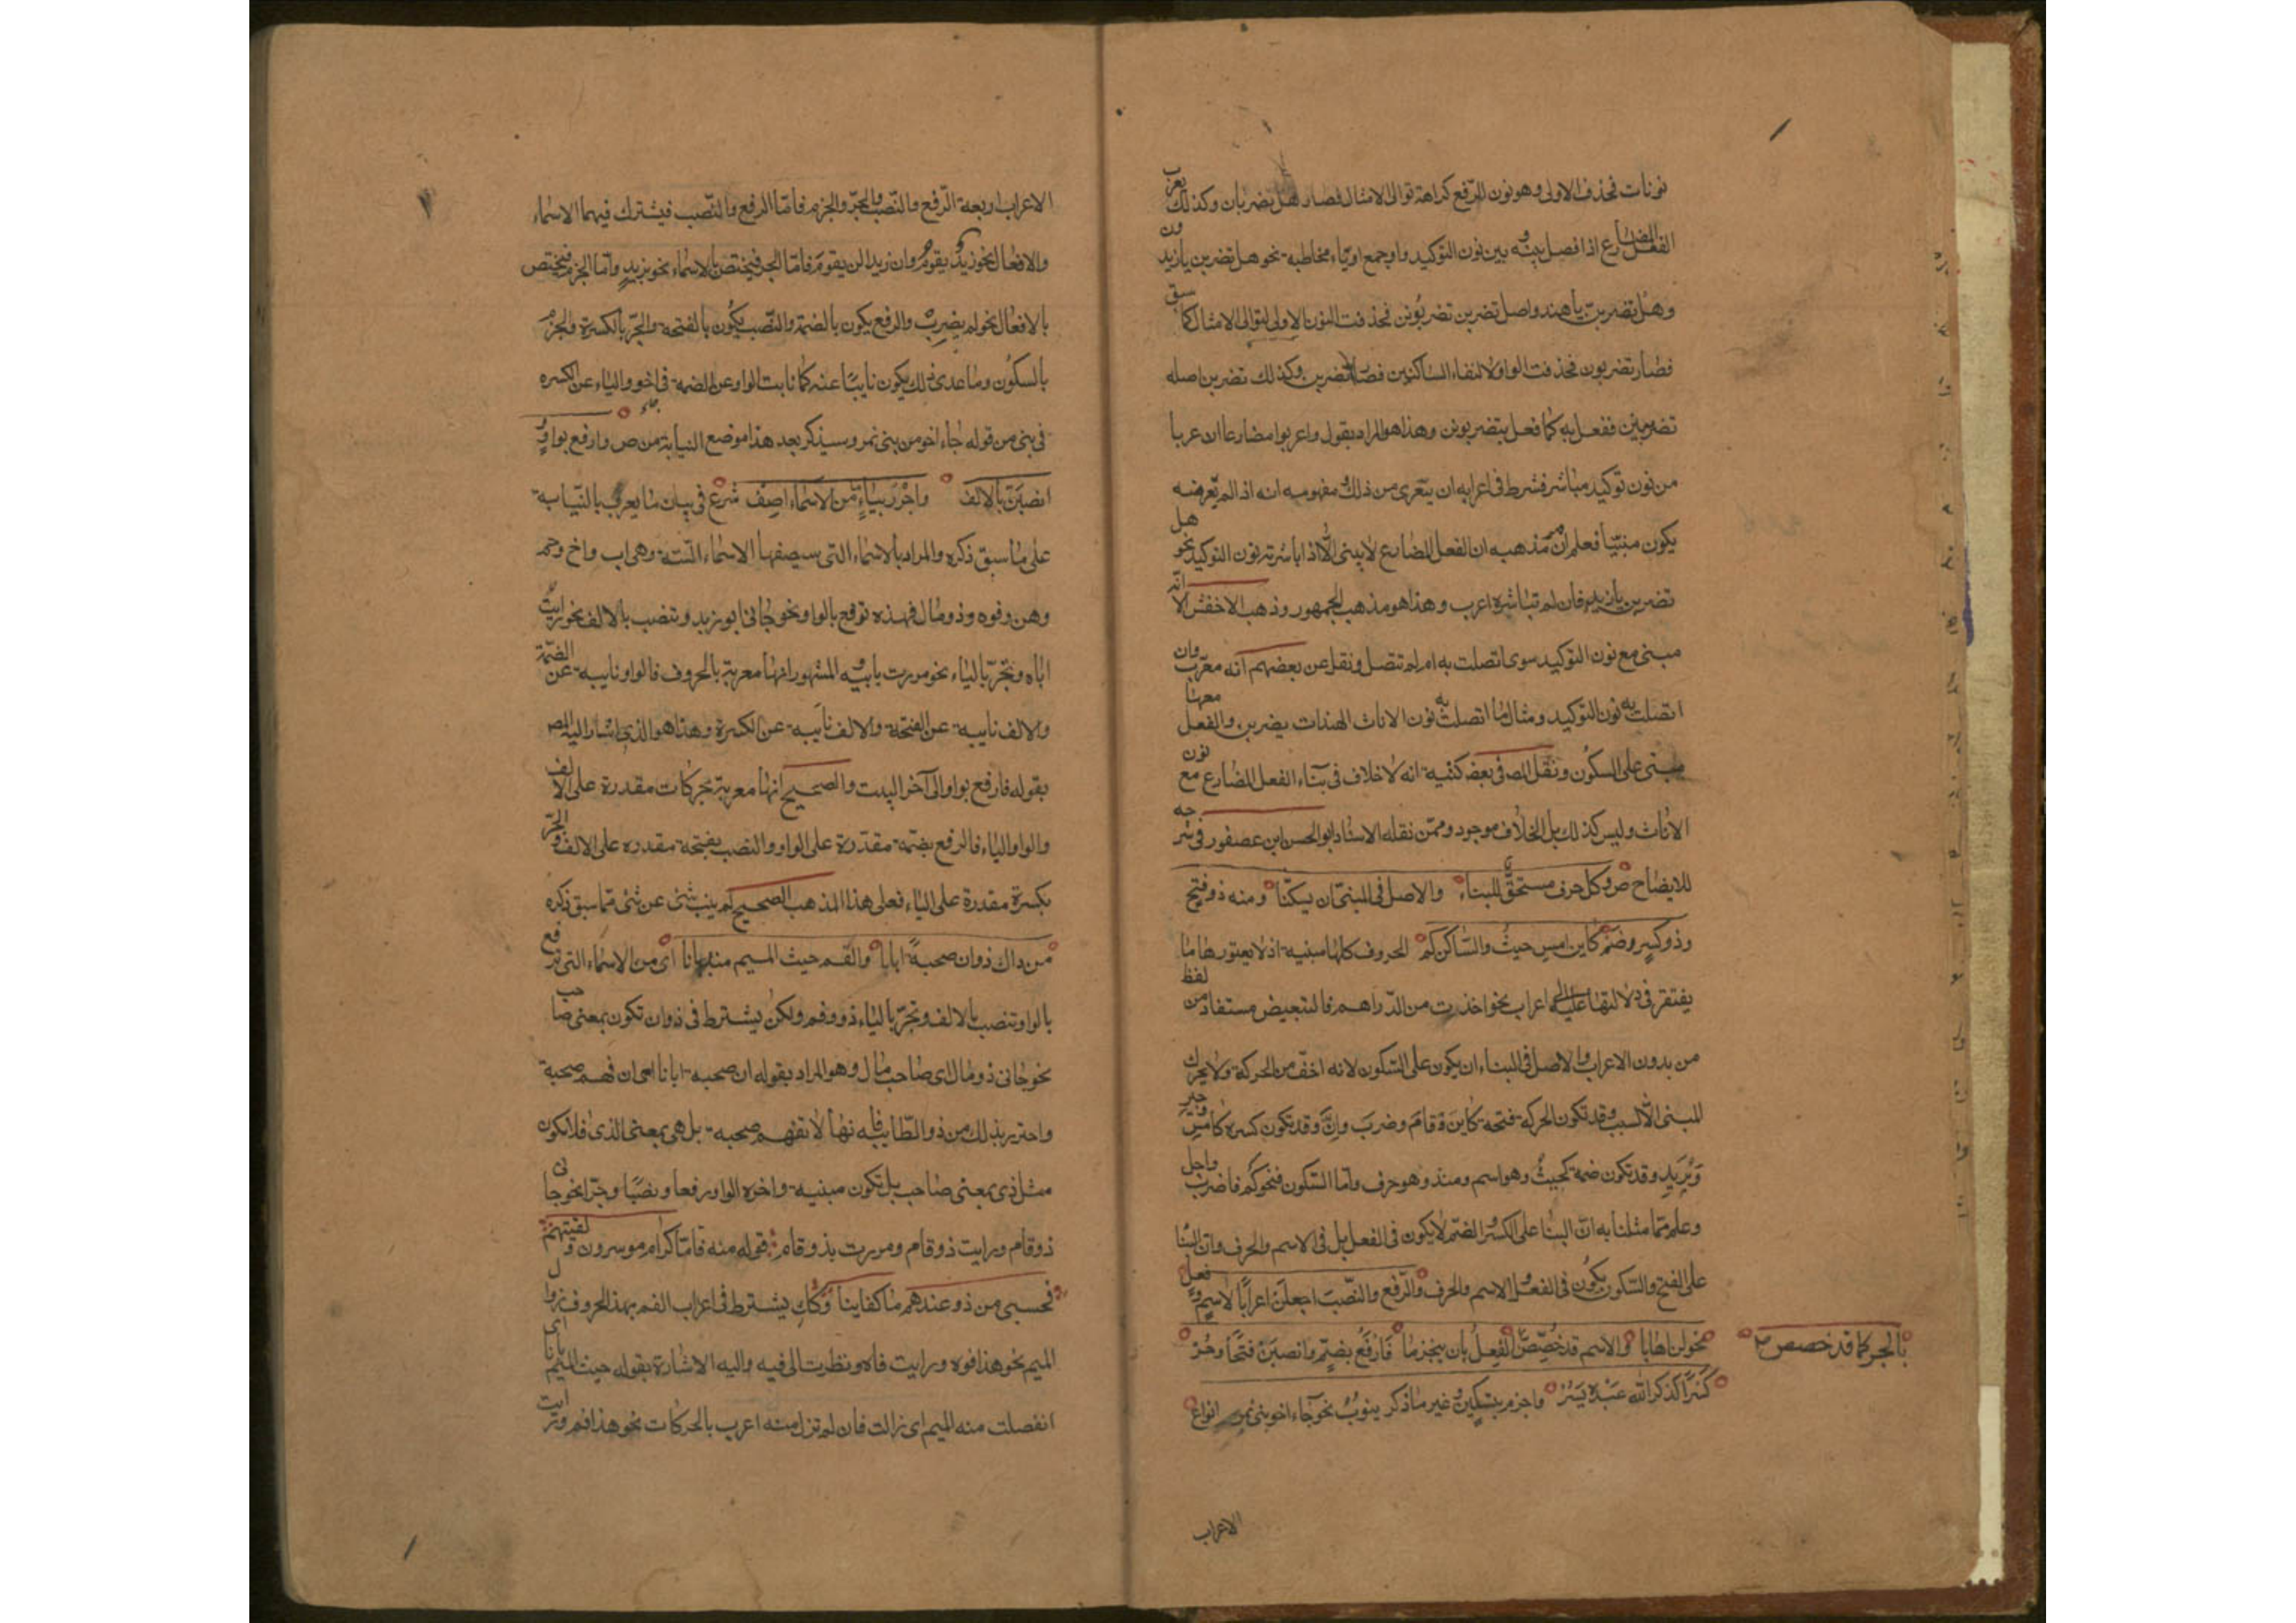 نونات فحذف الاولى وهو نون الرفع كراهة توالى الامثال فصار هل تضربان وكذلك يعرب
الفعل المضارع اذا فصل بينه وبين نون التوكيد واو جمع او ياء مخاطبة نحو هل تضربن يا زيدون
وهل تضربن يا هند واصل تضربن تضربونن فحذفت النون الاولى لتوالى الامثال كما سبق
فصار تضربون فحذفت الواو لالتقاء الساكنين فصار تضربن وكذلك تضربن اصله
تضربينن ففعل به كما فعل بتضربونن وهذا هو المراد بقوله واعربوا مضارعا ان عريا
من نون توكيد مباشر فشرط فى اعرابه ان يتعرى من ذلك ومفهومه انه اذا لم يتعر منه
يكون مبنيا فعلم ان مذهبه ان الفعل المضارع لا يبنى الا اذا باشرته نون التوكيد نحو هل
تضربن يا زيد فان لم تباشره اعرب وهذا هو مذهب الجمهور وذهب الاخفش الا انه
مبنى مع نون التوكيد سوى اتصلت به ام لم تتصل ونقل عن بعضهم انه معرب وان
اتصلت به نون التوكيد ومثال ما اتصلت به نون الاناث الهندات يضربن والفعل معها
مبنى على السكون ونقل المص فى بعض كتبه انه لا خلاف فى بناء الفعل المضارع مع نون
الاناث وليس كذلك بل الخلاف موجود وممن نقله الاستاد ابو الحسن ابن عصفور فى شرحه
للايضاح ص وكل حرف مستحق للبناء والاصل فى المبنى ان يسكنا ومنه ذو فتح
وذو كسر وضم كاين امس حيث والساكن كم الحروف كلها مبنية اذ لا يعتورها ما
يفتقر فى دلالتها عليه الى اعراب نحو اخذت من الدراهم فالتبعيض مستفاد من لفظ
من بدون الاعراب والاصل فى البناء ان يكون على السكون لانه اخف من الحركة ولا يحرك
المبنى الا لسبب وقد تكون الحركة فتحة كاين وقام وضرب وان وقد تكون كسرة كامس وجير
وبزيد وقد تكون ضمة كحيث وهو اسم ومنذ وهو حرف واما السكون فنحو كم واضرب واجل
وعلم مما مثلنا به ان البنا على الكسر والضم لا يكون فى الفعل بل فى الاسم والحرف وان البنا
على الفتح والسكون يكون فى الفعل والاسم والحرف والرفع والنصب اجعلن اعرابا لاسم وفعل
نحو لن اهابا والاسم قد خصص الفعل بان ينجزما فارفع بضم وانصبن فتحا وجر
بالجر كما قد خصص
كسرا كذكر الله عبده يسر واجزم بتسكين وغير ما ذكر ينوب نحو جاء اخو بنى نمر انواع
الاعراب
الاعراب اربعة الرفع والنصب والجر والجزم فاما الرفع والنصب فيشترك فيهما الاسماء
والافعال نحو زيد يقوم وان زيدا لن يقوم فاما الجر فيختص بالاسماء نحو بزيد واما الجزم فيختص
بالافعال نحو لم يضرب والرفع يكون بالضمة والنصب يكون بالفتحة والجر بالكسرة والجزم
بالسكون وما عدى ذلك يكون نايبا عنه كما نابت الواو عن الضمة فى اخو والياء عن الكسره
فى بنى من قوله جاء اخو من بنى نمر وسيذكر بعد هذا موضع النيابة من ص وارفع بواو
انصبن بالالف واجرر بياء من الاسماء اصف شرع فى بيان ما يعرب بالنيابة
على ما سبق ذكره والمراد بالاسماء التى سيصفها الاسماء الستة وهى اب واخ وحم
وهن وفوه وذو مال فهذه ترفع بالواو نحو جانى ابو زيد وتنصب بالالف نحو رايت
اباه وتجر بالياء نحو مررت بابيه والمشهور انها معربة بالحروف فالواو نايبة عن الضمة
ولالف نايبة عن الفتحة والالف نايبة عن الكسرة وهذا هو الذى اشار اليه المص
بقوله فارفع بواو الى آخر البيت والصحيح انها معربة بحركات مقدرة على الالف
والواو والياء فالرفع بضمة مقدرة على الواو والنصب بفتحة مقدره على الالف والجر
بكسرة مقدرة على الياء فعلى هذا المذهب الصحيح لم ينب شئ عن شئ مما سبق ذكره
من ذاك ذو ان صحبة ابانا والفم حيث الميم منه بانا اى من الاسماء التى ترفع
بالواو وتنصب بالالف وتجر بالياء ذو وفم ولكن يشترط فى ذو ان تكون بمعنى صاحب
نحو جانى ذو مال اى صاحب مال وهو المراد بقوله ان صحبة ابانا اى ان فهم صحبة
واحترز بذلك من ذو الطايية فانها لا تفهم صحبه بل هى بمعنى الذى فلا تكون
مثل ذى بمعنى صاحب بل تكون مبنية واخره الواو رفعا ونصبا وجرا نحو جانى
ذو قام ورايت ذو قام ومررت بذو قام فقوله منه فاما كرام موسرون لقيتهم
فحسبى من ذو عندهم ما كفاينا وكذلك يشترط فى اعراب الفم بهذه الحروف زوال
الميم نحو هذا فوه ورايت فاه ونظرت الى فيه واليه الاشارة بقوله حيث الميم بانا اى
انفصلت منه الميم اى زالت فان لم تزل منه اعرب بالحركات نحو هذا فم ورايت